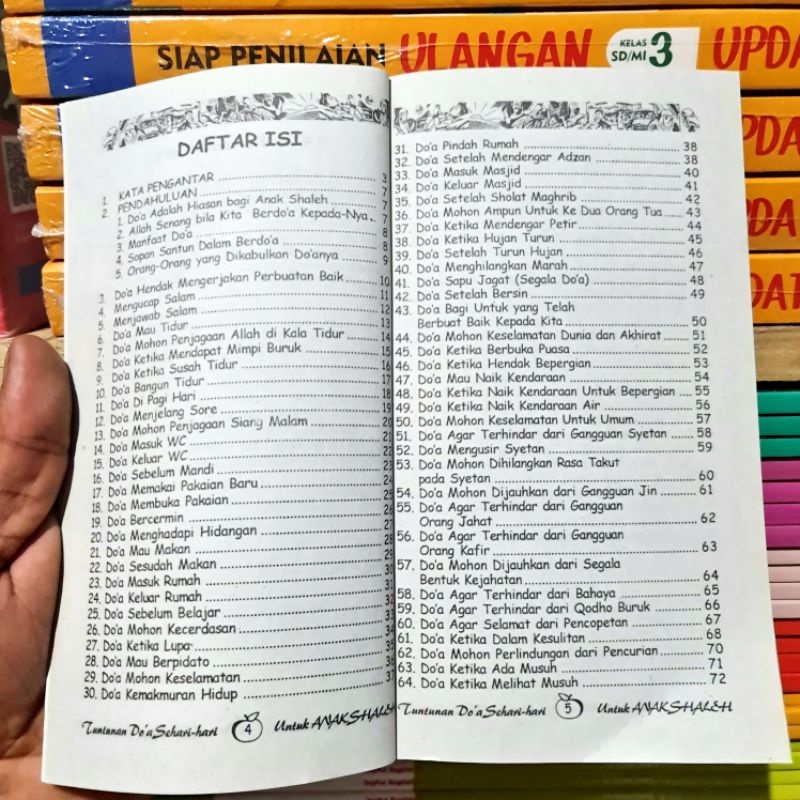 SIAP PENILAIAN ULANGAN KELAS SD/MI 3
DAFTAR ISI
1. KATA PENGANTAR 3
2. PENDAHULUAN 7
1. Do'a Adalah Hiasan bagi Anak Shaleh 7
2. Allah Senang bila Kita Berdo'a Kepada-Nya 7
3. Manfaat Do'a 8
4. Sopan Santun Dalam Berdo'a 8
5. Orang-Orang yang Dikabulkan Do'anya 9
3. Do'a Hendak Mengerjakan Perbuatan Baik 10
4. Mengucap Salam 11
5. Menjawab Salam 12
6. Do'a Mau Tidur 13
7. Do'a Mohon Penjagaan Allah di Kala Tidur 14
8. Do'a Ketika Mendapat Mimpi Buruk 15
9. Do'a Ketika Susah Tidur 16
10. Do'a Bangun Tidur 17
11. Do'a Di Pagi Hari 18
12. Do'a Menjelang Sore 19
13. Do'a Mohon Penjagaan Siang Malam 20
14. Do'a Masuk WC 21
15. Do'a Keluar WC 22
16. Do'a Sebelum Mandi
17. Do'a Memakai Pakaian Baru
18. Do'a Membuka Pakaian
19. Do'a Bercermin
20. Do'a Menghadapi Hidangan
21. Do'a Mau Makan
22. Do'a Sesudah Makan
23. Do'a Masuk Rumah
24. Do'a Keluar Rumah
25. Do'a Sebelum Belajar
26. Do'a Mohon Kecerdasan
27. Do'a Ketika Lupa
28. Do'a Mau Berpidato
29. Do'a Mohon Keselamatan
30. Do'a Kemakmuran Hidup
Tuntunan Do'a Sehari-hari 4 Untuk ANAK SHALEH
31. Do'a Pindah Rumah 38
32. Do'a Setelah Mendengar Adzan 38
33. Do'a Masuk Masjid 40
34. Do'a Keluar Masjid 41
35. Do'a Setelah Sholat Maghrib 42
36. Do'a Mohon Ampun Untuk Ke Dua Orang Tua 43
37. Do'a Ketika Mendengar Petir 44
38. Do'a Ketika Hujan Turun 45
39. Do'a Setelah Turun Hujan 46
40. Do'a Menghilangkan Marah 47
41. Do'a Sapu Jagat (Segala Do'a) 48
42. Do'a Setelah Bersin 49
43. Do'a Bagi Untuk yang Telah
Berbuat Baik Kepada Kita 50
44. Do'a Mohon Keselamatan Dunia dan Akhirat 51
45. Do'a Ketika Berbuka Puasa 52
46. Do'a Ketika Hendak Bepergian 53
47. Do'a Mau Naik Kendaraan 54
48. Do'a Ketika Naik Kendaraan Untuk Bepergian 55
49. Do'a Ketika Naik Kendaraan Air 56
50. Do'a Mohon Keselamatan Untuk Umum 57
51. Do'a Agar Terhindar dari Gangguan Syetan 58
52. Do'a Mengusir Syetan 59
53. Do'a Mohon Dihilangkan Rasa Takut
pada Syetan 60
54. Do'a Mohon Dijauhkan dari Gangguan Jin 61
55. Do'a Agar Terhindar dari Gangguan
Orang Jahat 62
56. Do'a Agar Terhindar dari Gangguan
Orang Kafir 63
57. Do'a Mohon Dijauhkan dari Segala
Bentuk Kejahatan 64
58. Do'a Agar Terhindar dari Bahaya 65
59. Do'a Agar Terhindar dari Qodho Buruk 66
60. Do'a Agar Selamat dari Pencopetan 67
61. Do'a Ketika Dalam Kesulitan 68
62. Do'a Mohon Perlindungan dari Pencurian 70
63. Do'a Ketika Ada Musuh 71
64. Do'a Ketika Melihat Musuh 72
Tuntunan Do'a Sehari-hari 5 Untuk ANAK SHALEH